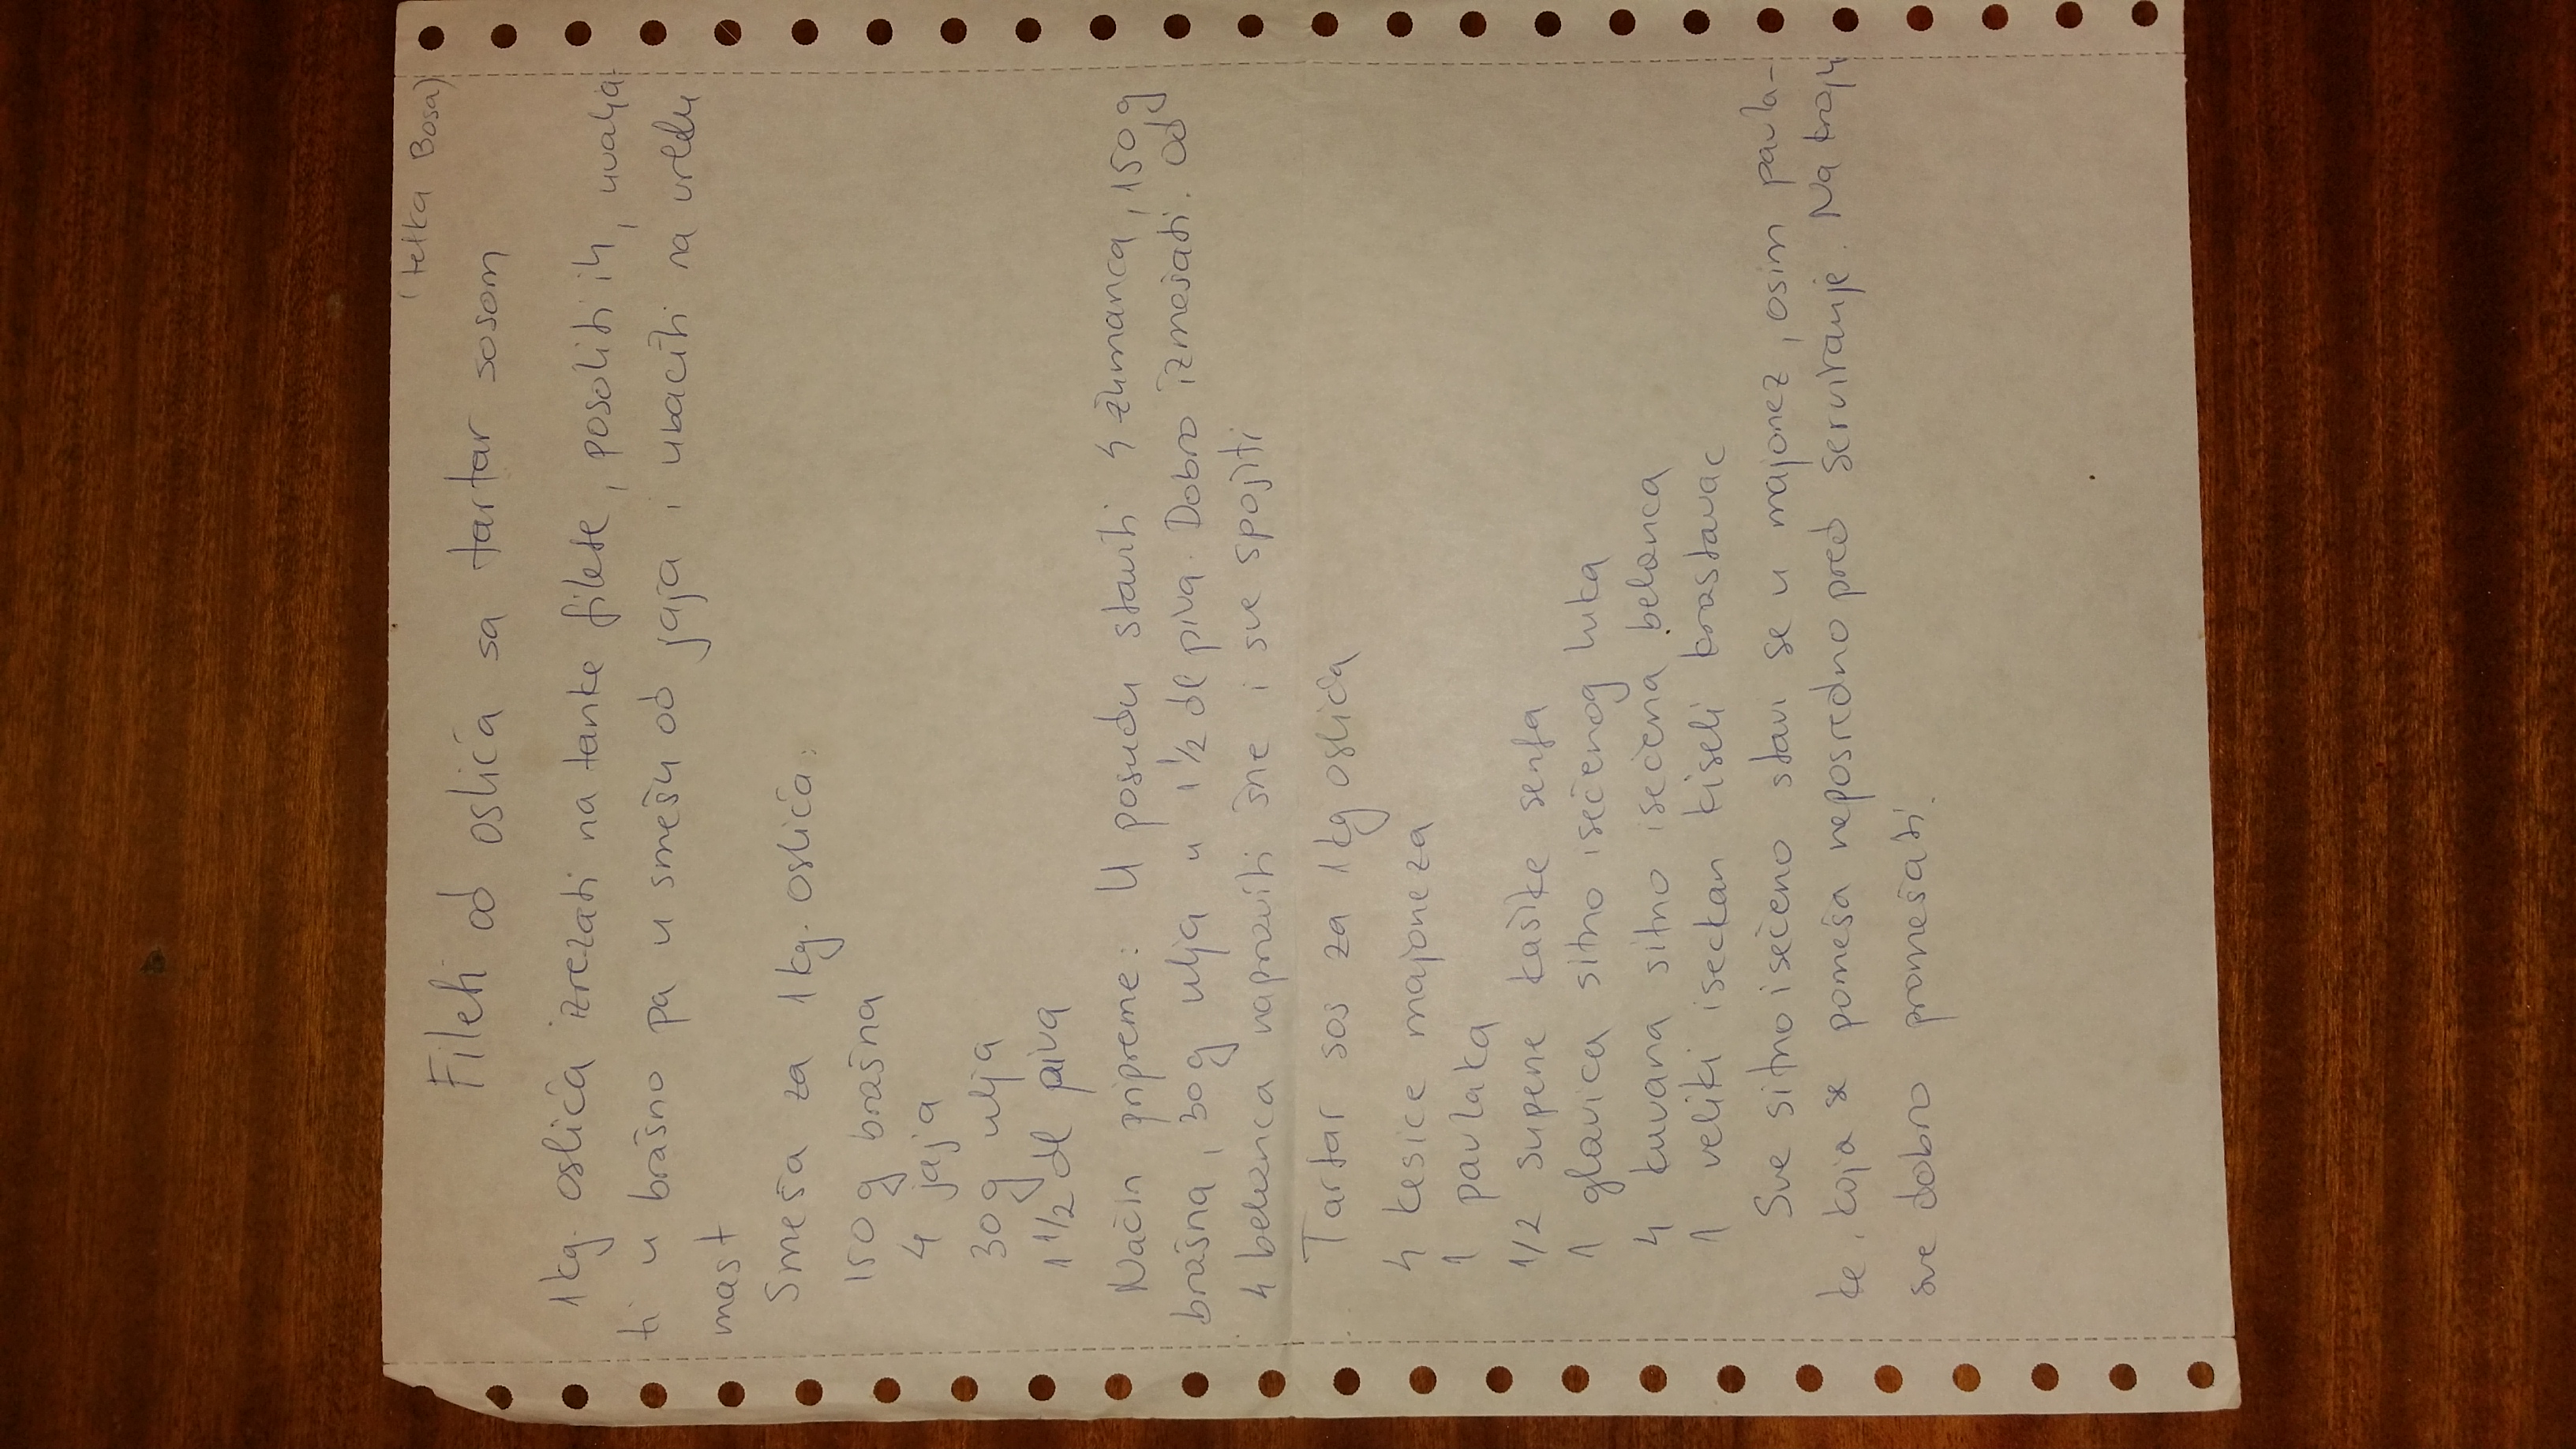 (tetka Bosa)
Fileti od oslića sa tartar sosom
1 kg. oslića izrezati na tanke filete, posoliti ih, uvalja-
ti u brašno pa u smešu od jaja i ubaciti na vrelu
mast
Smeša za 1 kg. oslića:
150 g brašna
4 jaja
30 g ulja
1 1/2 dl piva
Način pripreme: U posudu staviti 4 žumanca, 150 g
brašna, 30 g ulja u 1 1/2 dl piva. Dobro izmešati. Od
4 belanca napraviti šne i sve spojiti
Tartar sos za 1 kg oslića
4 kesice majoneza
1 pavlaka
1/2 supene kašike senfa
1 glavica sitno isečenog luka
4 kuvana sitno isečena belanca
1 veliki iseckan kiseli krastavac
Sve sitno isečeno stavi se u majonez, osim pavla-
ke, koja se pomeša neposredno pred serviranje. Na kraju
sve dobro promešati.